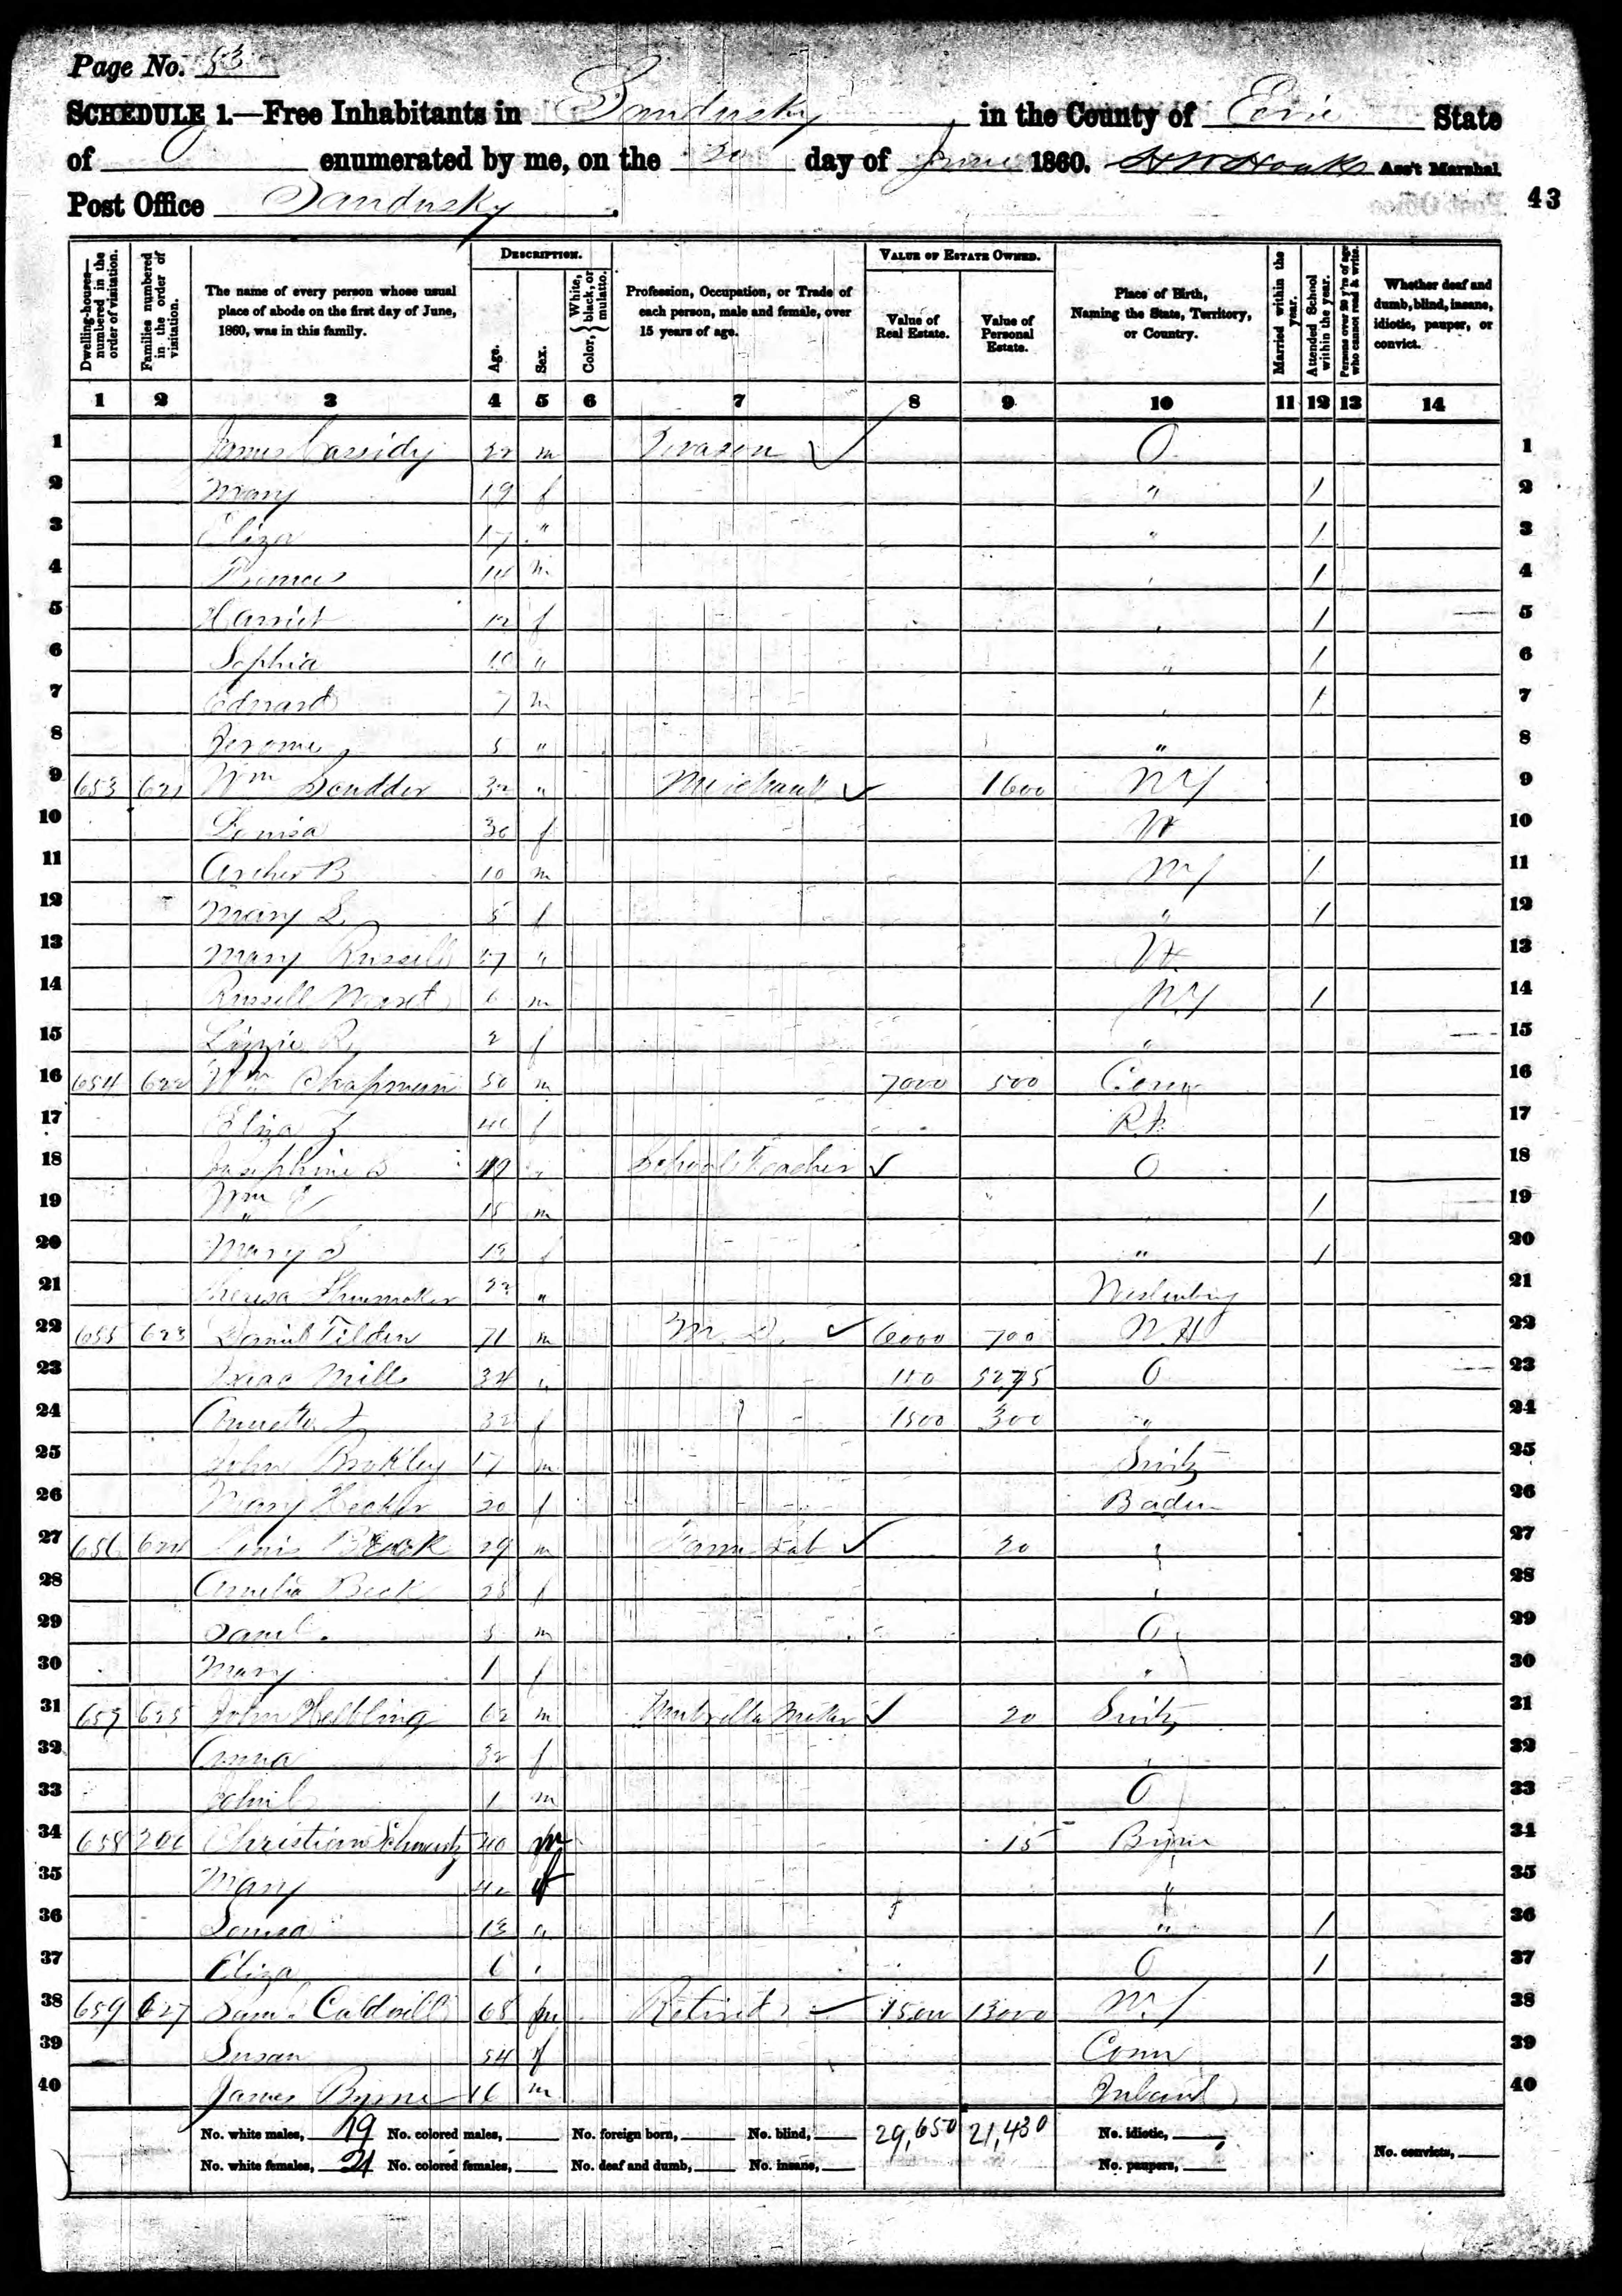 Page No. 83
SCHEDULE 1.—Free Inhabitants in Sandusky in the County of Erie State
of enumerated by me, on the 20 day of June 1860. Ass't Marshal.
Post Office Sandusky.
43
Dwelling-houses—numbered in the order of visitation.
Families numbered in the order of visitation.
The name of every person whose usual place of abode on the first day of June, 1860, was in this family.
DESCRIPTION.
Age.
Sex.
Color, { White, black, or mulatto.
Profession, Occupation, or Trade of each person, male and female, over 15 years of age.
VALUE OF ESTATE OWNED.
Value of Real Estate.
Value of Personal Estate.
Place of Birth, Naming the State, Territory, or Country.
Married within the year.
Attended School within the year.
Persons over 20 y'rs of age who cannot read & write.
Whether deaf and dumb, blind, insane, idiotic, pauper, or convict.
1 2 3 4 5 6 7 8 9 10 11 12 13 14
1 James Cassidy 22 m O 1
2 Mary 19 f " 1 2
3 Eliza 17 " " 1 3
4 Thomas 14 m 1 4
5 Harriet 12 f 1 5
6 Sophia 10 " " 1 6
7 Edward 7 m 1 7
8 Jerome 5 " " 8
9 653 621 Wm Scudder 32 " Merchant ✓ 1600 NY 9
10 Louisa 30 f Vt 10
11 Archer B 10 m NY 1 11
12 Mary L 5 f " 1 12
13 Mary Russell 57 " Vt 13
14 Russell 6 m NY 1 14
15 Lizzie R 2 f " 15
16 654 622 Wm Chapman 50 m 7000 500 Conn 16
17 Eliza f R.I. 17
18 Josephine S 19 School Teacher ✓ O 18
19 Wm 15 m 1 19
20 Mary S 12 f " 1 20
21 Theresa Shumaker 22 " 21
22 655 623 Daniel Tilden 71 m M.D. ✓ 6000 700 N.H 22
23 Isaac Mills 34 " 5275 O 23
24 32 f 1500 300 " 24
25 John 17 m Switz 25
26 Mary 20 f Baden 26
27 656 624 Beck 29 m Farm Lab ✓ 20 " 27
28 Amelia Beck 28 f 28
29 Saml. 5 m O 29
30 Mary 1 f " 30
31 657 625 John Helbling 62 m Umbrella Maker ✓ 20 Switz 31
32 Anna 32 f 32
33 John 1 m O 33
34 658 Christian Schwartz 40 m 15 34
35 Mary f " 35
36 Louisa 13 " " 1 36
37 Eliza 6 O 1 37
38 659 627 Saml. Caldwell 68 m Retired ✓ 13000 38
39 Susan 54 f Conn 39
40 James Byrne 16 m Ireland 40
No. white males, 19 No. colored males, No. foreign born, No. blind, 29,650 21,430 No. idiotic,
No. white females, 21 No. colored females, No. deaf and dumb, No. insane, No. paupers, No. convicts,